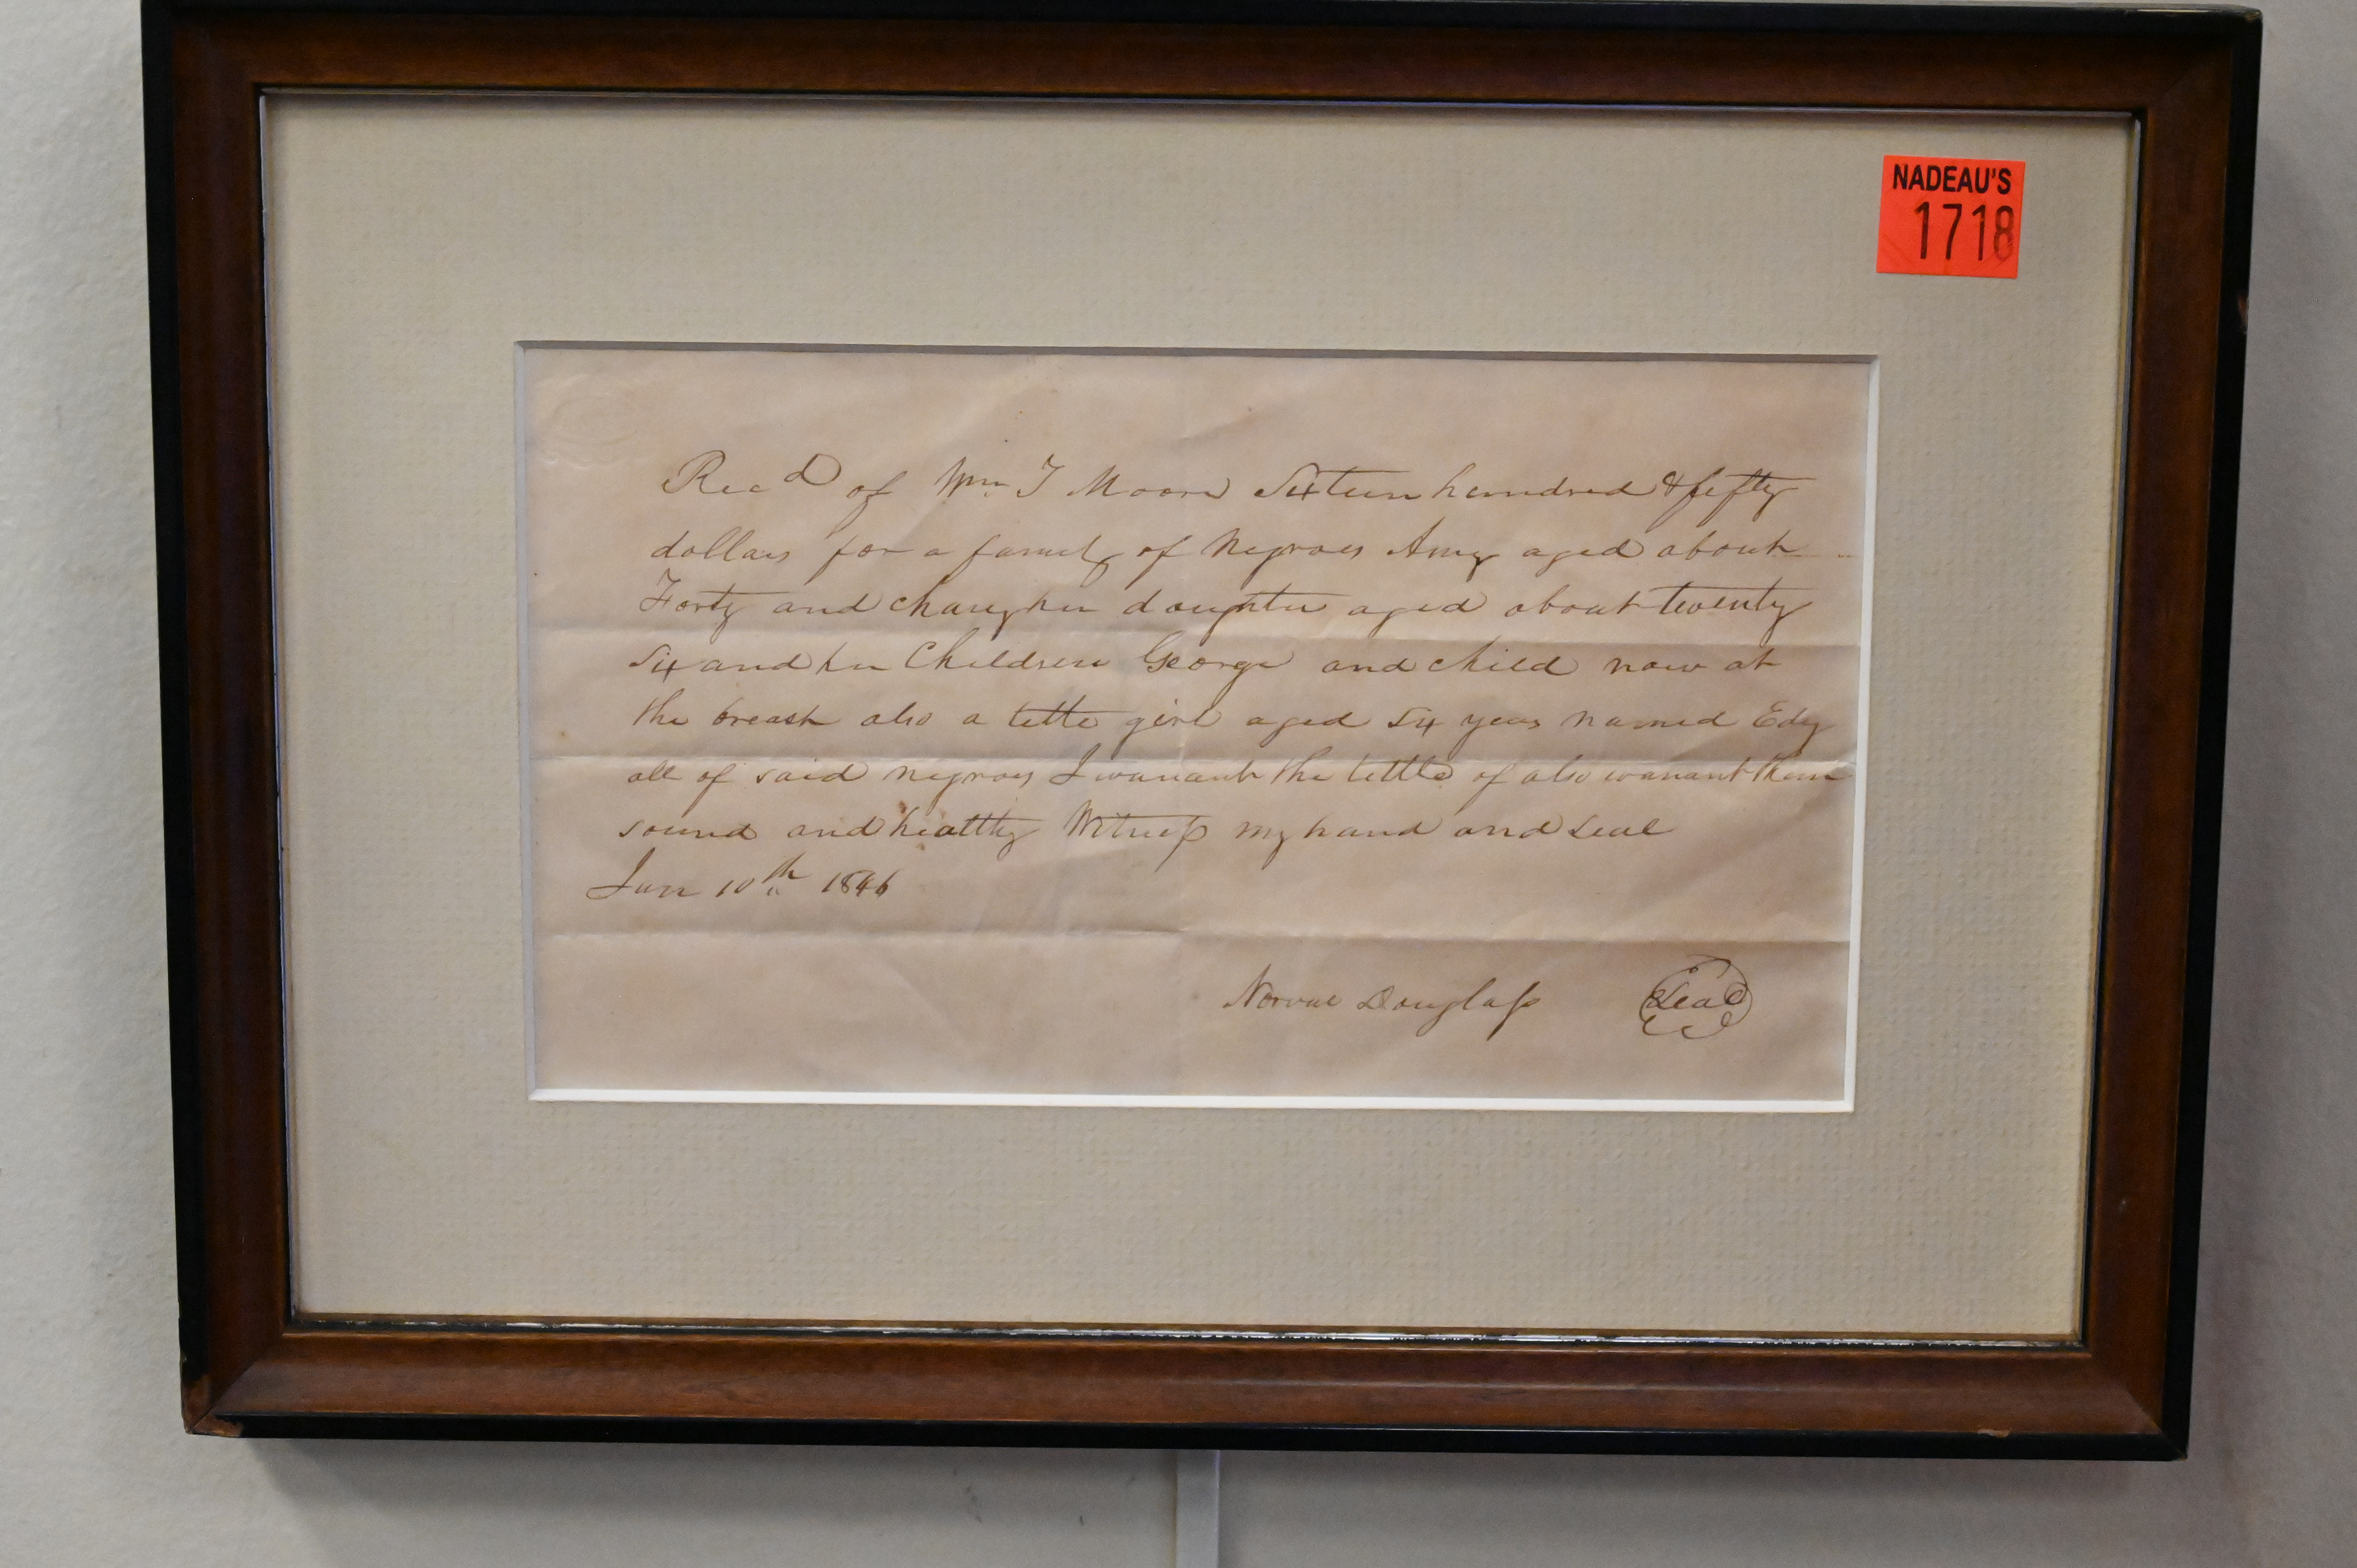 NADEAU'S
1718
Recd of Wm T Moore Sixteen hundred & fifty
dollars for a family of Negroes Amy aged about
Forty and Chany her daughter aged about twenty
Six and her Children George and child now at
the breast also a little girl aged Six years named Edy
all of said negroes I warrant the tittle of also warrant them
sound and healthy Witness my hand and seal
Jan 10th 1846
Norval Douglass Seal